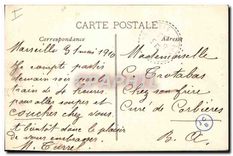 CARTE POSTALE
Correspondance
Adresse
Marseille 31 mai 190
Je compte partir
demain soir par le
train de 4 heures
pour aller souper et
coucher chez vous
et bientôt donc le plaisir
de vous embrasser
M. Pierre
Mademoiselle
C Castabas
Chez son frère
Curé de Corbières
B. A.